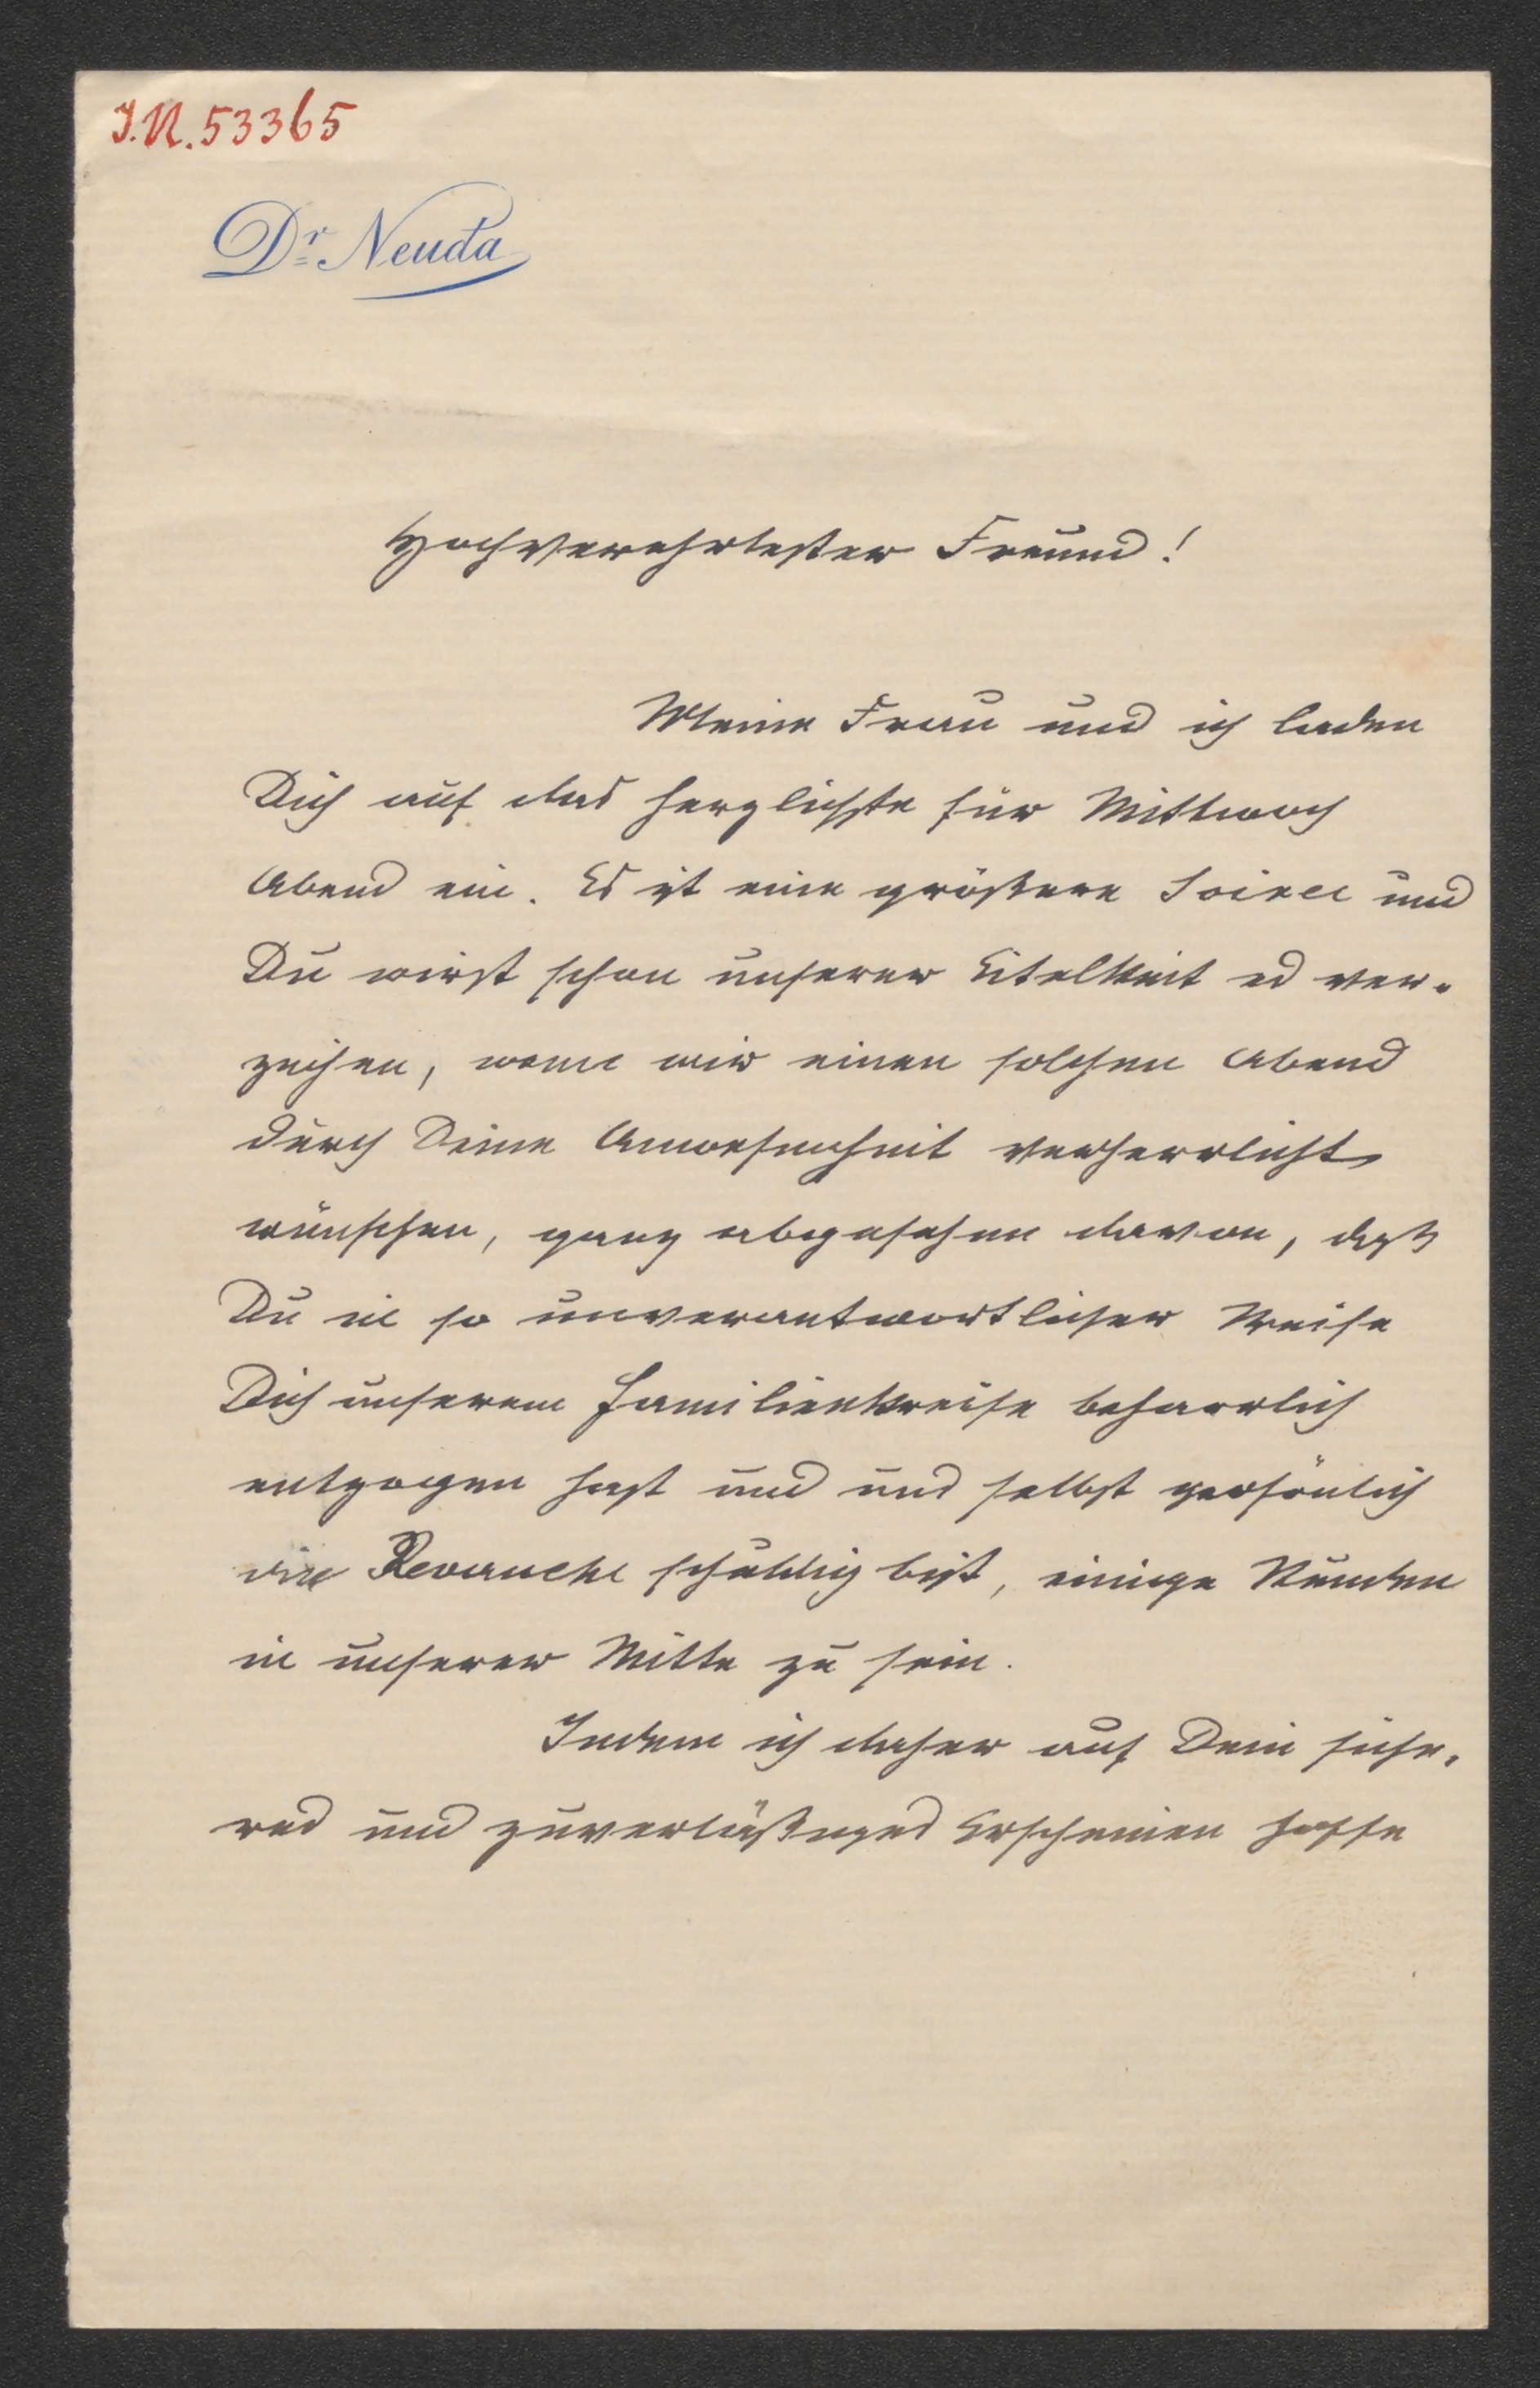 I.N. 53365
Dr. Neuda
Hochverehrtester Freund!
Meine Frau und ich laden
Dich auf das herzlichste für Mittwoch
Abend ein. Es ist eine größere Soiree und
Du wirst schon unserer Eitelkeit es ver-
zeihen, wenn wir einen solchen Abend
durch Deine Anwesenheit verherrlicht
wünschen, ganz abgesehen davon, daß
Du in so unverantwortlicher Weise
Dich unserem Familienkreise beharrlich
entzogen hast und uns selbst persönlich
die Revanche schuldig bist, einige Stunden
in unserer Mitte zu sein.
Indem ich daher auf Dein siche-
res und zuverläßiges Erscheinen hoffe